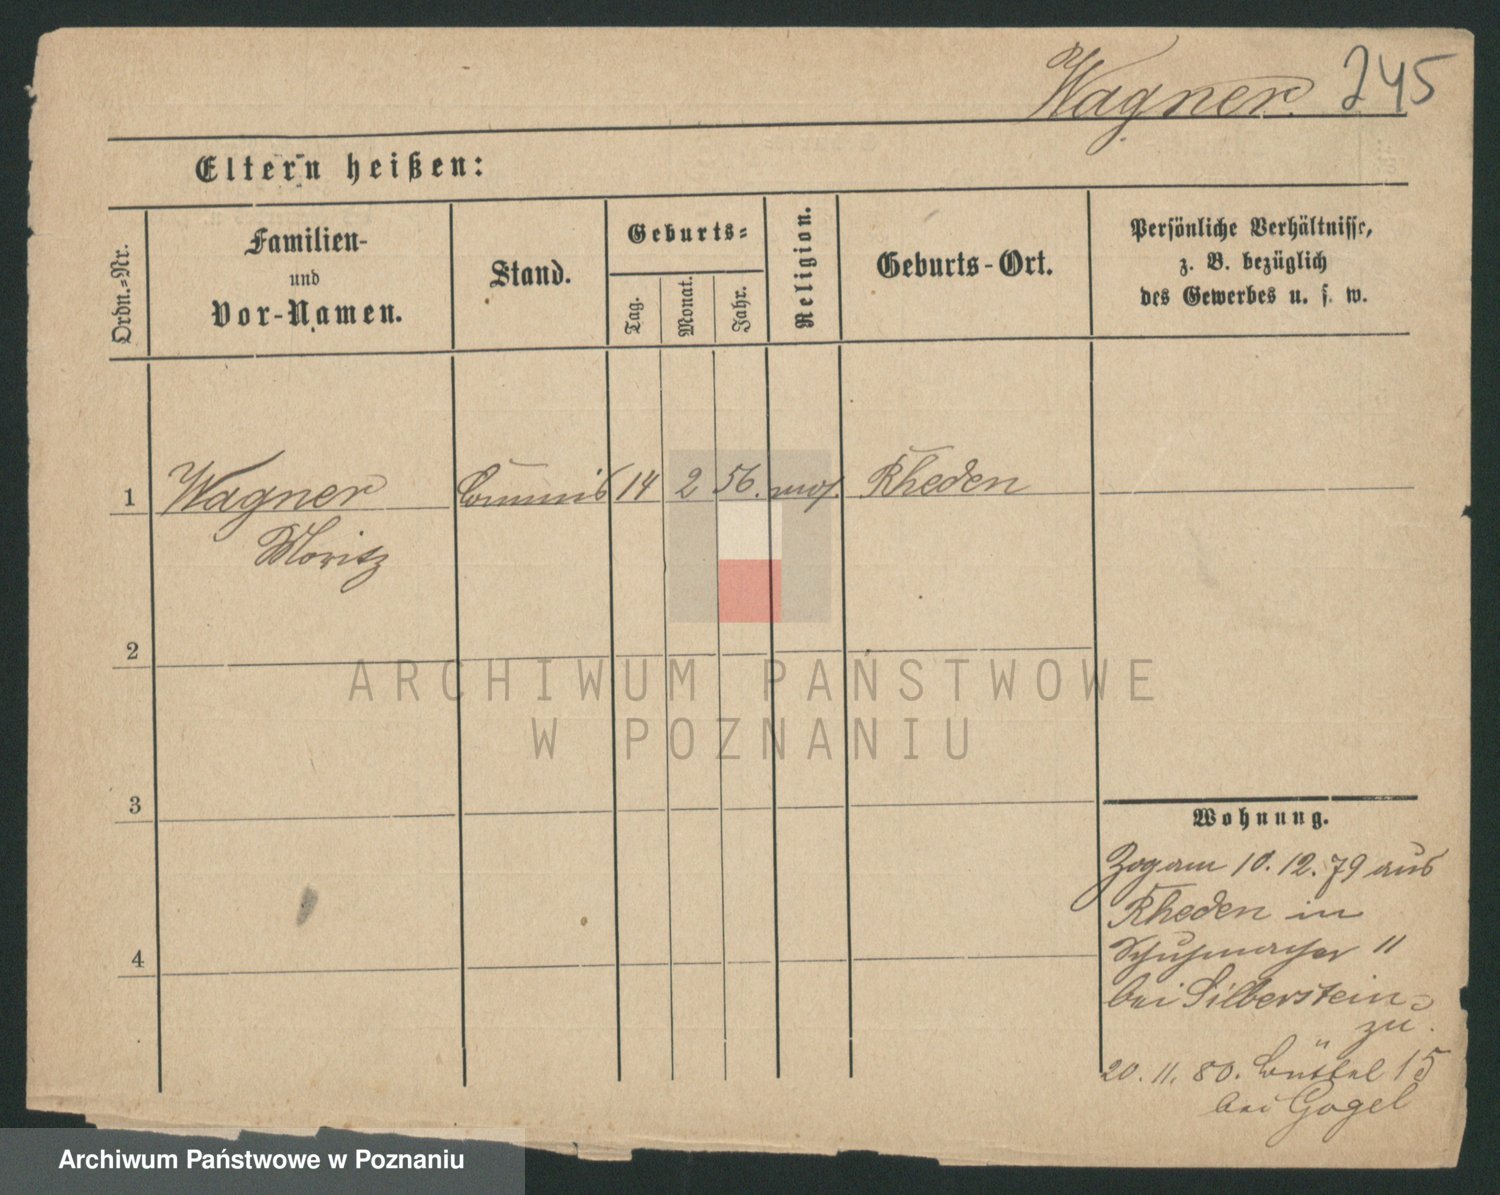 Wagner. 245
Eltern heißen:
Ordn.-Nr.
Familien-
und
Vor-Namen.
Stand.
Geburts-
Tag.
Monat.
Jahr.
Religion.
Geburts-Ort.
Persönliche Verhältnisse,
z. B. bezüglich
des Gewerbes u. s. w.
1 Wagner Commis 14 2 56. mos. Rheden
Moritz
2
3
4
Wohnung.
Zog am 10. 12. 79 aus
Rheden in
Schuhmacher 11
bei Silberstein
zu.
20. 11. 80. Büttel 15
bei Gogel
ARCHIWUM PAŃSTWOWE
W POZNANIU
Archiwum Państwowe w Poznaniu